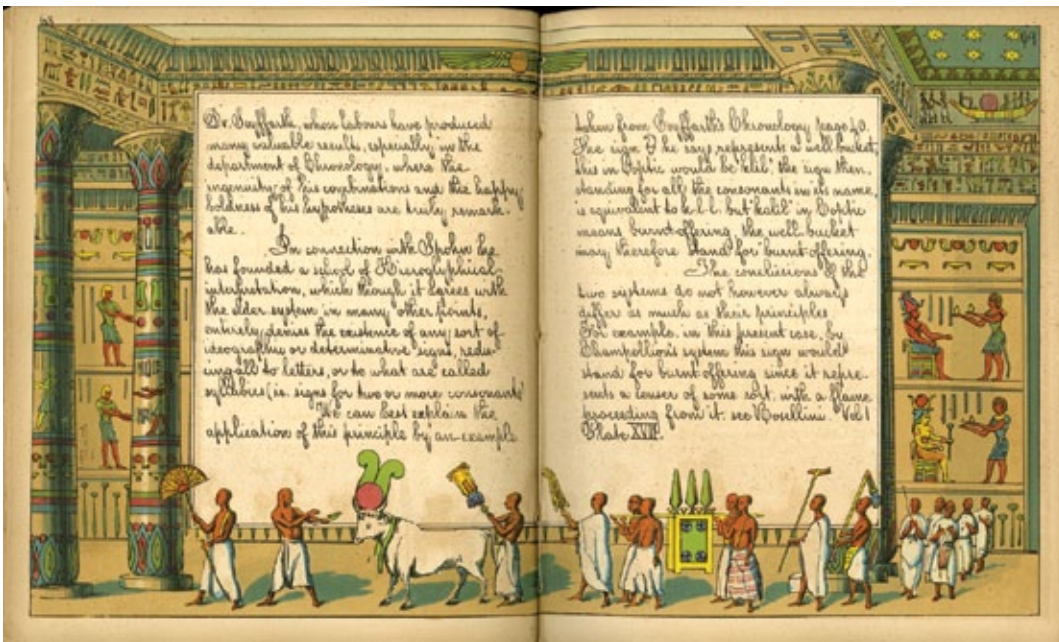 68
Dr. Seyffarth, whose labours have produced
many valuable results, especially in the
department of Chronology, where the
ingenuity of his combinations and the happy
boldness of his hypotheses are truly remark-
able.
In connection with Spohn he
has founded a school of Hieroglyphical
interpretation, which though it agrees with
the elder system in many other points,
entirely denies the existence of any sort of
ideographic or determinative signs, redu-
cing all to letters, or to what are called
syllabics (i.e. signs for two or more consonants)
We can best explain the
application of this principle by an example
69
taken from Seyffarth's Chronology page 40.
The sign he says represents a well bucket,
this in Coptic would be "kelil", the sign then,
standing for all the consonants in its name,
is equivalent to k.l.l. but "kalil" in Coptic
means burnt offering, the well-bucket
may therefore stand for burnt offering.
The conclusions of the
two systems do not however always
differ as much as their principles
For example, in this present case, by
Champollion's system this sign would
stand for burnt offering since it repre-
sents a censer of some sort, with a flame
proceeding from it. see Rosellini. Vol 1
Plate XVII.